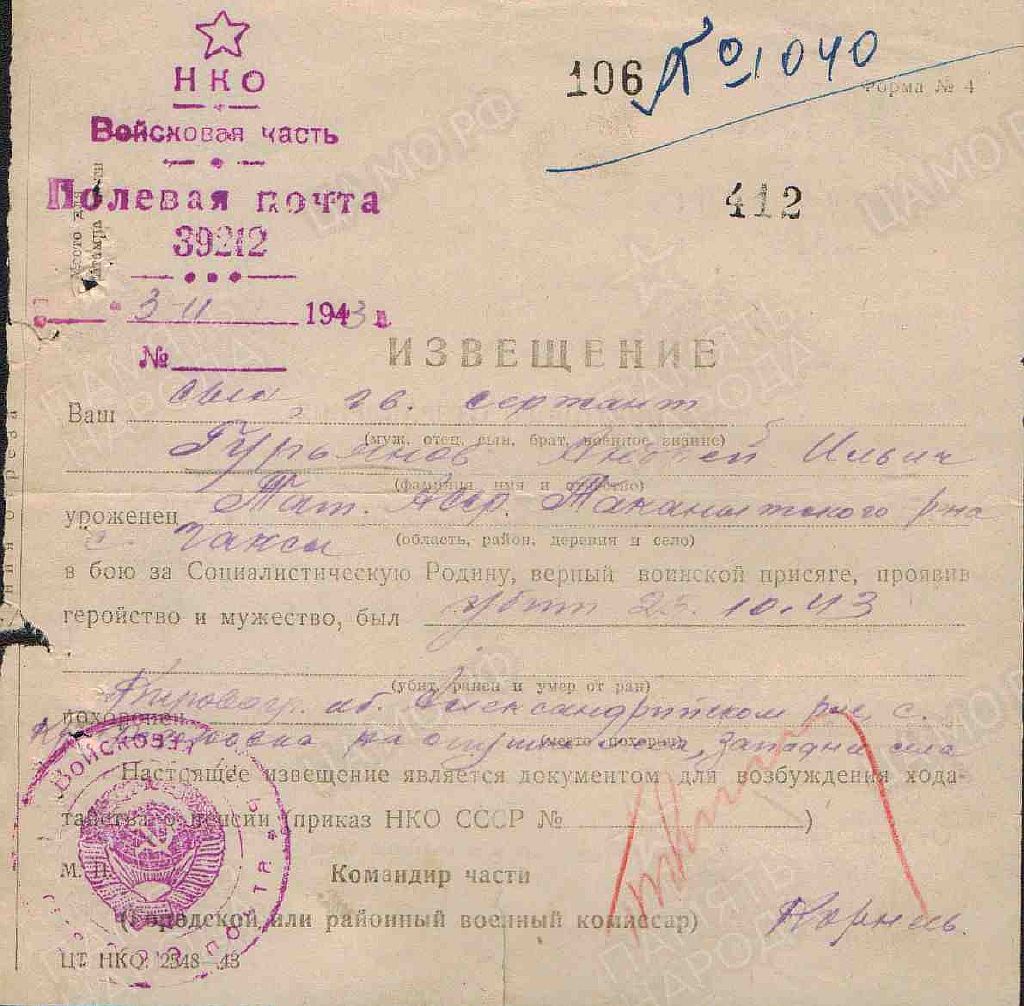 НКО
Войсковая часть
Полевая почта
39212
106 № 1040
Форма № 4
412
Место для штампа
3-11 1943 г.
№
ИЗВЕЩЕНИЕ
Ваш сын, гв. сержант
(муж, отец, сын, брат, военное звание)
Гурьянов Ильич
(фамилия, имя и отчество)
уроженец Тат. Такан
с.
(область, район, деревня и село)
в бою за Социалистическую Родину, верный воинской присяге, проявив
геройство и мужество, был убит 25.10.43
(убит, ранен и умер от ран)
похоронен Кировогр. об. Александрийском с.
на опушке западн села
(место похорон)
Настоящее извещение является документом для возбуждения хода-
тайства о пенсии (приказ НКО СССР № )
М. П. Командир части
(Городской или районный военный комиссар)
ЦТ НКО. 2548—43
Войсковая часть
почта
ЦАМО.РФ
ПАМЯТЬ НАРОДА